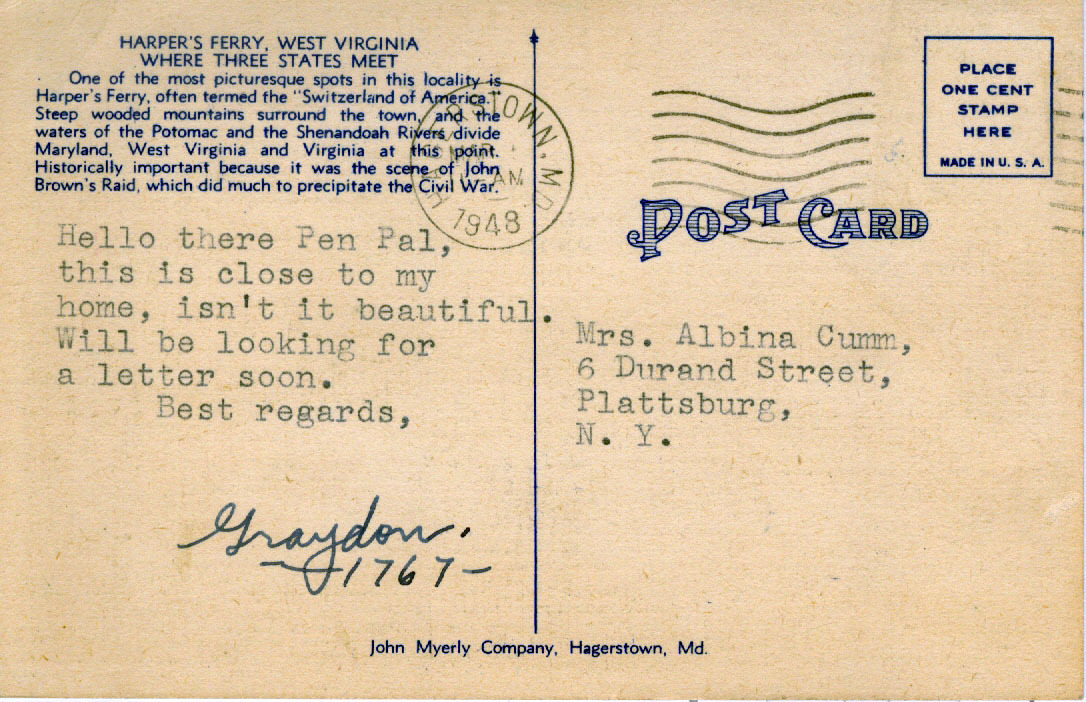 HARPER'S FERRY, WEST VIRGINIA
WHERE THREE STATES MEET
One of the most picturesque spots in this locality is
Harper's Ferry, often termed the "Switzerland of America."
Steep wooded mountains surround the town, and the
waters of the Potomac and the Shenandoah Rivers divide
Maryland, West Virginia and Virginia at this point.
Historically important because it was the scene of John
Brown's Raid, which did much to precipitate the Civil War.
HAGERSTOWN, MD.
AM
1948
PLACE
ONE CENT
STAMP
HERE
MADE IN U. S. A.
POST CARD
Hello there Pen Pal,
this is close to my
home, isn't it beautiful.
Will be looking for
a letter soon.
Best regards,
Graydon.
-1767-
Mrs. Albina Cumm,
6 Durand Street,
Plattsburg,
N. Y.
John Myerly Company, Hagerstown, Md.